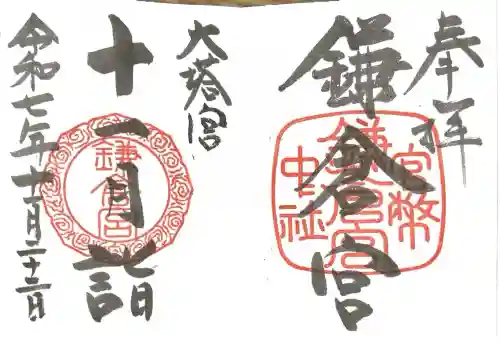 奉拝
鎌倉宮
官幣
鎌倉宮
中社
大塔宮
十一月詣
鎌倉宮
令和七年十一月二十三日